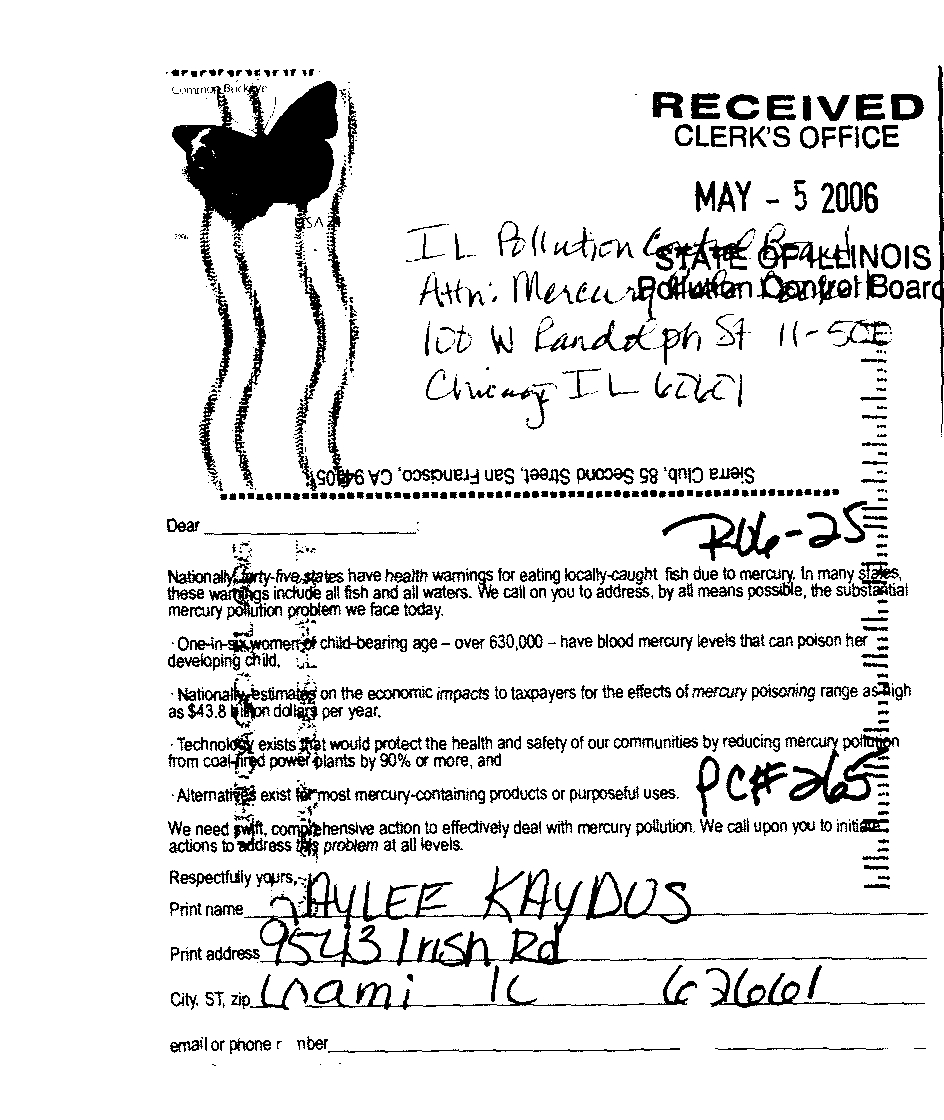 Common Buckeye
USA
RECEIVED
CLERK'S OFFICE
MAY - 5 2006
STATE OF ILLINOIS
Pollution Control Board
IL Pollution Control Board
Attn: Mercury
100 W Randolph St 11-500
Chicago IL 60601
Sierra Club, 85 Second Street, San Francisco, CA 94105
Dear :
R06-25
Nationally, forty-five states have health warnings for eating locally-caught fish due to mercury. In many states,
these warnings include all fish and all waters. We call on you to address, by all means possible, the substantial
mercury pollution problem we face today.
· One-in-six women of child-bearing age – over 630,000 – have blood mercury levels that can poison her
developing child,
· Nationally, estimates on the economic impacts to taxpayers for the effects of mercury poisoning range as high
as $43.8 billion dollars per year,
· Technology exists that would protect the health and safety of our communities by reducing mercury pollution
from coal-fired power plants by 90% or more, and
PC# 265
· Alternatives exist for most mercury-containing products or purposeful uses.
We need swift, comprehensive action to effectively deal with mercury pollution. We call upon you to initiate
actions to address this problem at all levels.
Respectfully yours,
Print name AYLEE KAYDUS
Print address 9543 Irish Rd
City, ST, zip IL 62661
email or phone r nber